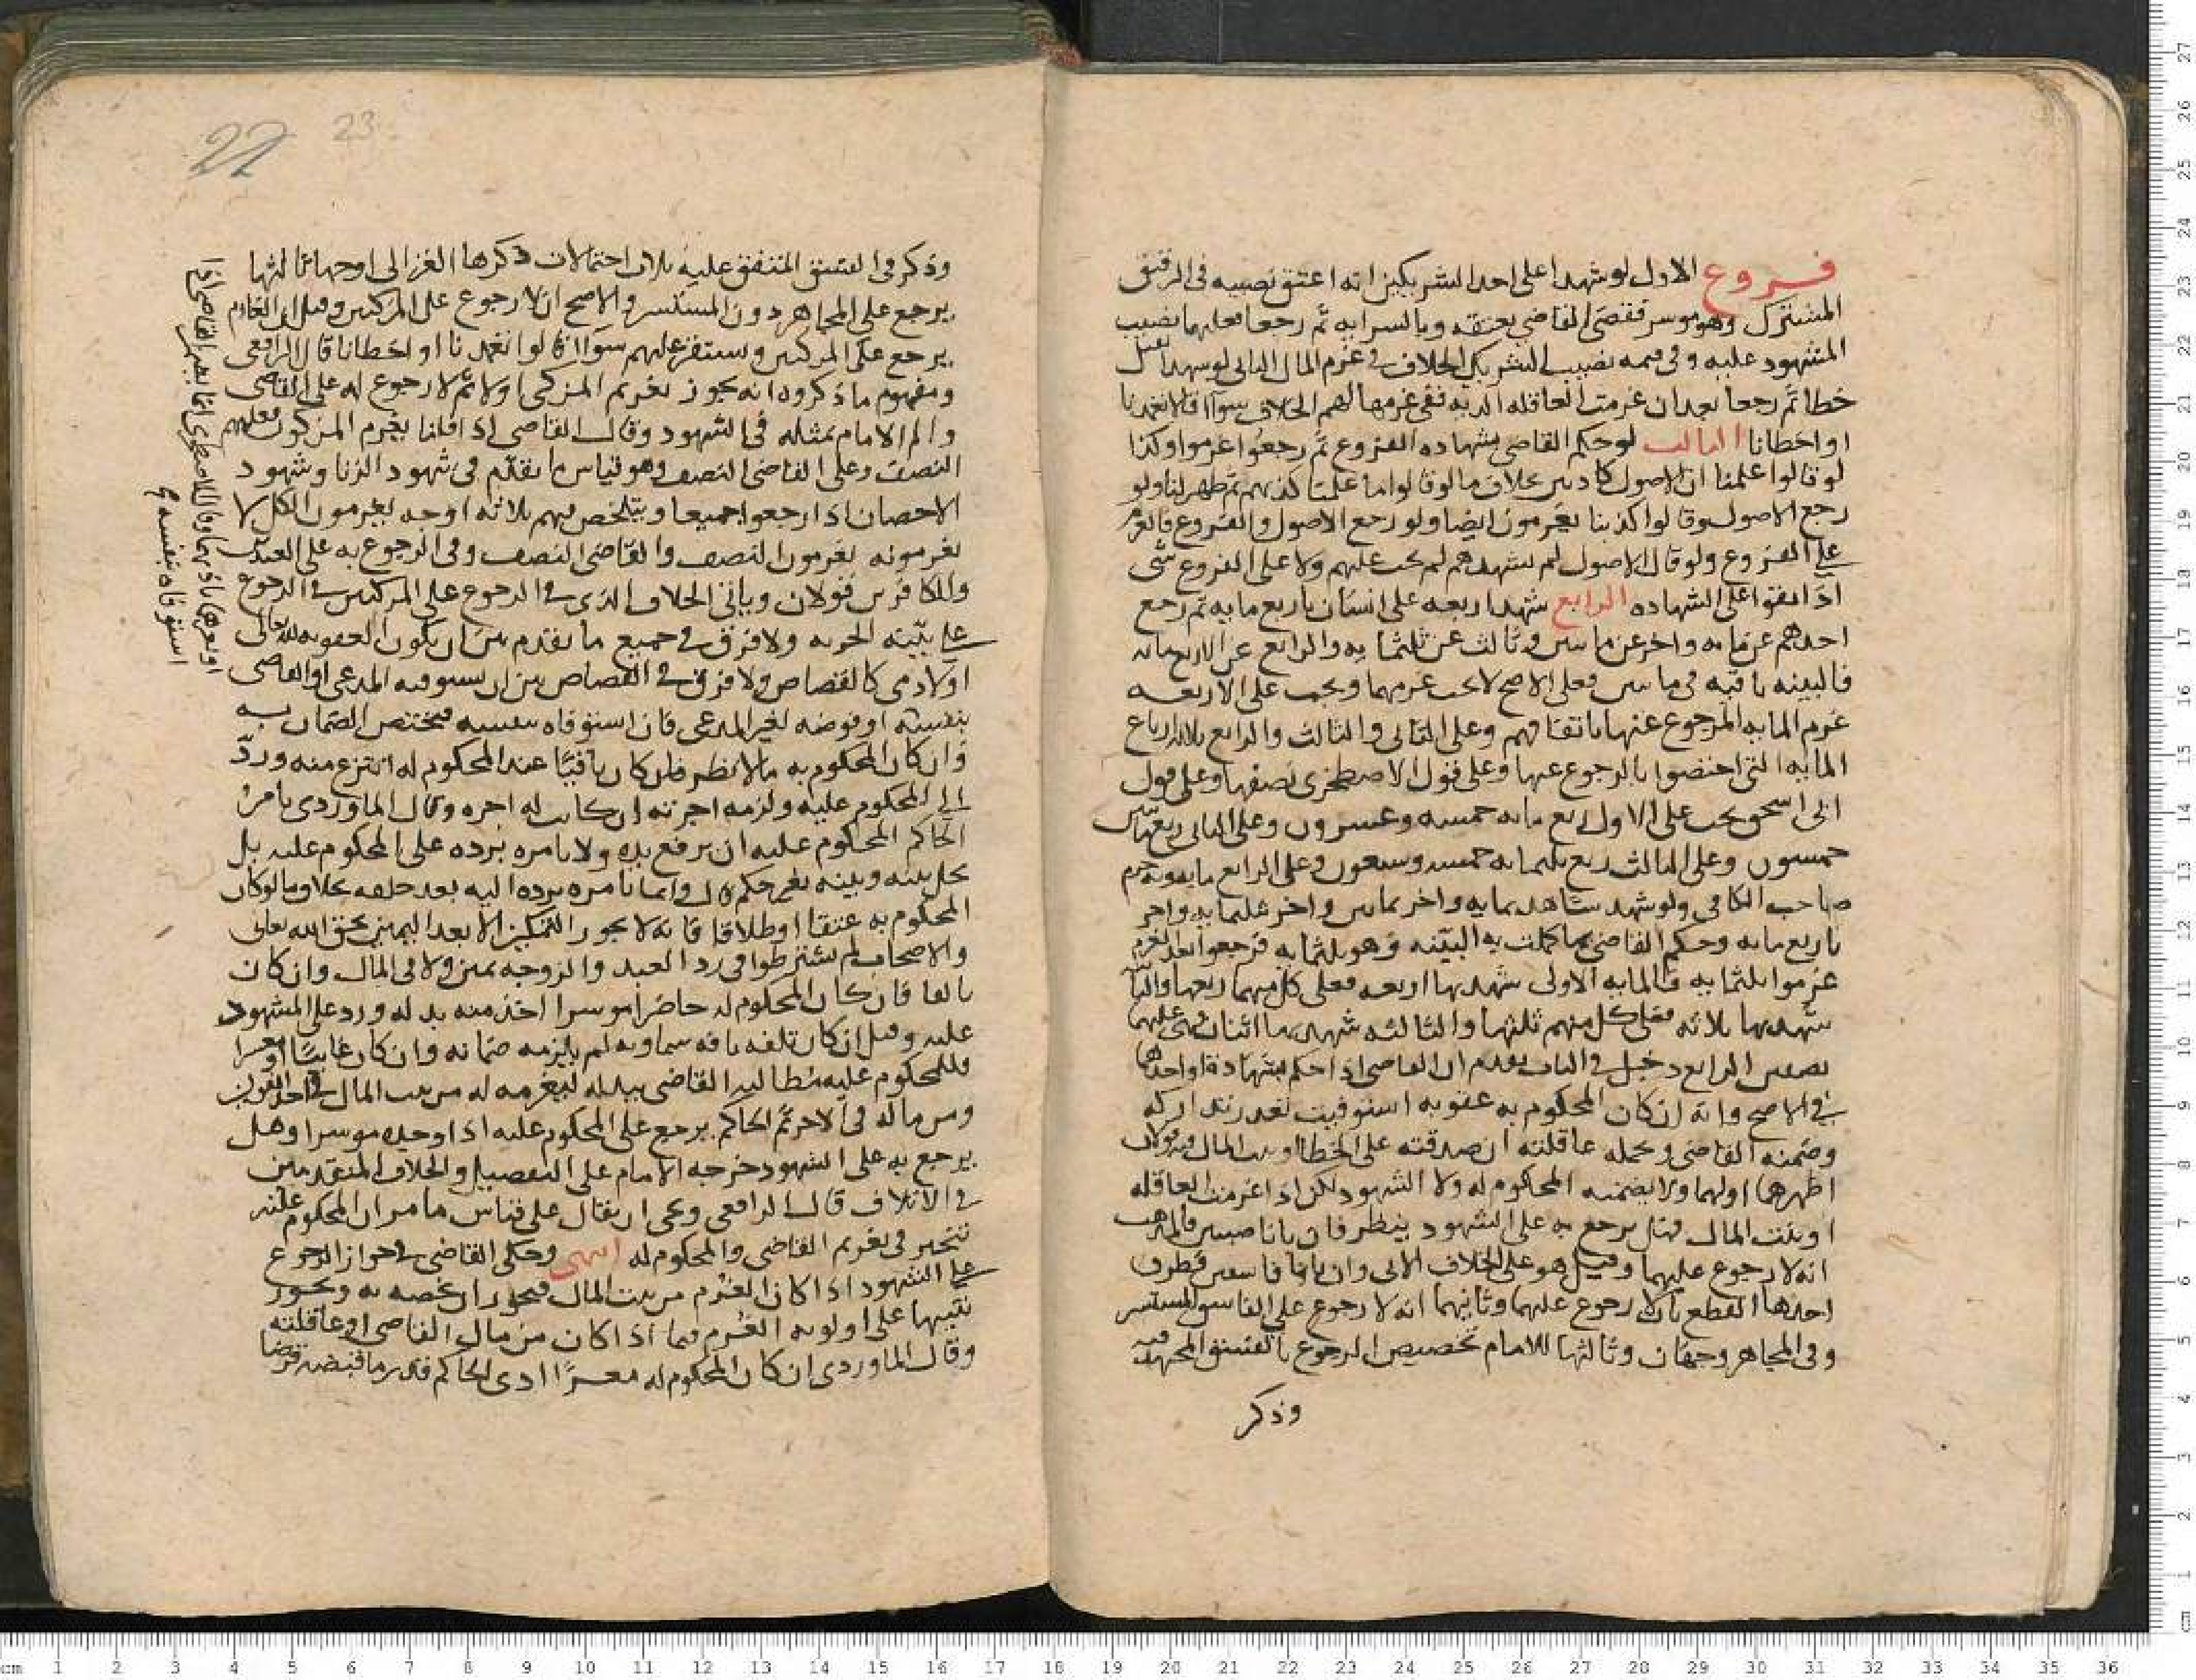 فروع الاول لو شهدا على احد الشريكين انه اعتق نصيبه فى الرقيق
المشترك وهو موسر فقضى القاضى بعتقه وبالسرايه ثم رجعا فعليهما نصيب
المشهود عليه وفى قيمه نصيب الشريك الخلاف فى غرم المال الثانى لو شهدا بقتل
خطا ثم رجعا بعد ان غرمت العاقله الديه ففى غرمها لهم الخلاف سوا قالا تعمدنا
او اخطانا الثالث لو حكم القاضى بشهاده الفروع ثم رجعوا غرموا وكذا
لو قالوا علمنا ان الاصول كاذبين بخلاف ما لو قالوا ما علمنا كذبهم ثم ظهر لنا ولو
رجع الاصول وقالوا كذبنا يغرمون ايضا ولو رجع الاصول والفروع فالغرم
على الفروع ولو قال الاصول لم نشهدهم لم يجب عليهم ولا على الفروع شى
اذا بقوا على الشهاده الرابع شهد اربعه على انسان باربع مايه ثم رجع
احدهم عن مايه واخر عن مايتين وثالث عن ثلثمايه والرابع عن الاربع مايه
فالبينه باقيه فى مايتين فعلى الاصح لا يجب غرمهما ويجب على الاربعه
غرم المايه المرجوع عنها باتفاقهم وعلى الثانى والثالث والرابع ثلاثه ارباع
المايه التى اختصوا بالرجوع عنها وعلى قول الاصطخرى نصفها وعلى قول
ابى اسحق يجب على الاول ربع مايه خمسه وعشرون وعلى الثانى ربع مايتين
خمسون وعلى الثالث ربع ثلثمايه خمسه وسبعون وعلى الرابع مايه وبه جزم
صاحب الكافى ولو شهد شاهد بمايه واخر بمايتين واخر بثلثمايه واخر
باربع مايه وحكم القاضى بما كملت به البينه وهو ثلثمايه فرجعوا بعد الغرم
غرموا ثلثمايه فالمايه الاولى شهد بها اربعه فعلى كل منهم ربعها والثانيه
شهد بها ثلاثه فعلى كل منهم ثلثها والثالثه شهد بها اثنان فهى عليهما
نصفين الرابع دخيل فى الباب تقدم ان القاضى اذا حكم بشهادة او احدهما
فى الاصح وانه ان كان المحكوم به عقوبه استوفيت تعذر تداركه
وضمنه القاضى وتحمله عاقلته ان صدقته على الخطا او بيت المال فيه قولان
اظهرهما اولهما ولا يضمنه المحكوم له ولا الشهود لكن اذا غرمت العاقله
او بيت المال فهل يرجع به على الشهود ينظر فان بانا صبيين فالمذهب
انه لا رجوع عليهما وقيل هو على الخلاف الاتى وان بانا فاسقين فطرق
احدها القطع بان لا رجوع عليهما وثانيها انه لا رجوع على الفاسق المستسر
وفى المجاهر وجهان وثالثها للامام تخصيص الرجوع بالفسق المجتهد فيه
وذكر
وذكر فى الفسق المتفق عليه ثلاث احتمالات ذكرها الغزالى اوجها ثالثها
يرجع على المجاهر دون المستسر والاصح ان لا رجوع على المزكين وقيل ان الغارم
يرجع على المزكين ويستقر عليهم سوا ان قالوا تعمدنا او اخطانا قال الرافعى
ومفهوم ما ذكروه انه يجوز تغريم المزكى اولا ثم لا رجوع له على القاضى
والم الامام بمثله فى الشهود وقال القاضى اذا قلنا يغرم المزكون فعليهم
النصف وعلى القاضى النصف وهو قياس ما تقدم فى شهود الزنا وشهود
الاحصان اذا رجعوا جميعا ويتلخص فيهم ثلاثه اوجه يغرمون الكل لا
يغرمونه يغرمون النصف والقاضى النصف وفى الرجوع به على العبدين
والكافرين قولان وياتى الخلاف الذى فى الرجوع على المزكين فى الرجوع
على بينه الحريه ولا فرق فى جميع ما تقدم بين ان يكون العقوبه لله تعالى
او لادمى كالقصاص ولا فرق فى القصاص بين ان يستوفيه المدعى او القاضى
بنفسه او فوضه لغير المدعى فان استوفاه بنفسه فيختص الضمان به
وان كان المحكوم به مالا نظر فان كان باقيا عند المحكوم له انتزع منه ورد
الى المحكوم عليه ولزمه اجرته ان كانت له اجره وقال الماوردى يامر
الحاكم المحكوم عليه ان يرفع يده ولا يامره برده على المحكوم عليه بل
يخلى بينه وبينه بغير حكم قال وانما يامره برده اليه بعد حلفه بخلاف ما لو كان
المحكوم به عتقا او طلاقا فانه لا يجوز التمكين الا بعد اليمين لحق الله تعالى
والاصحاب لم يشترطوا فى رد العبد والزوجه يمين ولا فى المال وان كان
تالفا فان كان المحكوم له حاضرا موسرا اخذ منه بدله ورد على المشهود
عليه وقيل ان كان تلفه بافه سماويه لم يلزمه ضمانه وان كان غايبا او معسرا
فللمحكوم عليه مطالبه القاضى ببدله ليغرمه له من بيت المال فى احد القولين
ومن ماله فى الاخر ثم الحاكم يرجع على المحكوم عليه اذا وجده موسرا وهل
يرجع به على الشهود خرجه الامام على التفصيل والخلاف المتقدمين
فى الاتلاف قال الرافعى ويجى ان يقال على قياس ما مر ان المحكوم عليه
يتخير فى تغريم القاضى والمحكوم له انتهى وحكى القاضى فى جواز الرجوع
على الشهود اذا كان الغرم من بيت المال فيجوز ان يخصه به ويجوز
تنبيها على اولويه الغرم فيما اذا كان من مال القاضى او عاقلته
وقال الماوردى ان كان المحكوم له معسرا ادى الحاكم قدر ما قبضه قرضا
استوفاه بنفسه